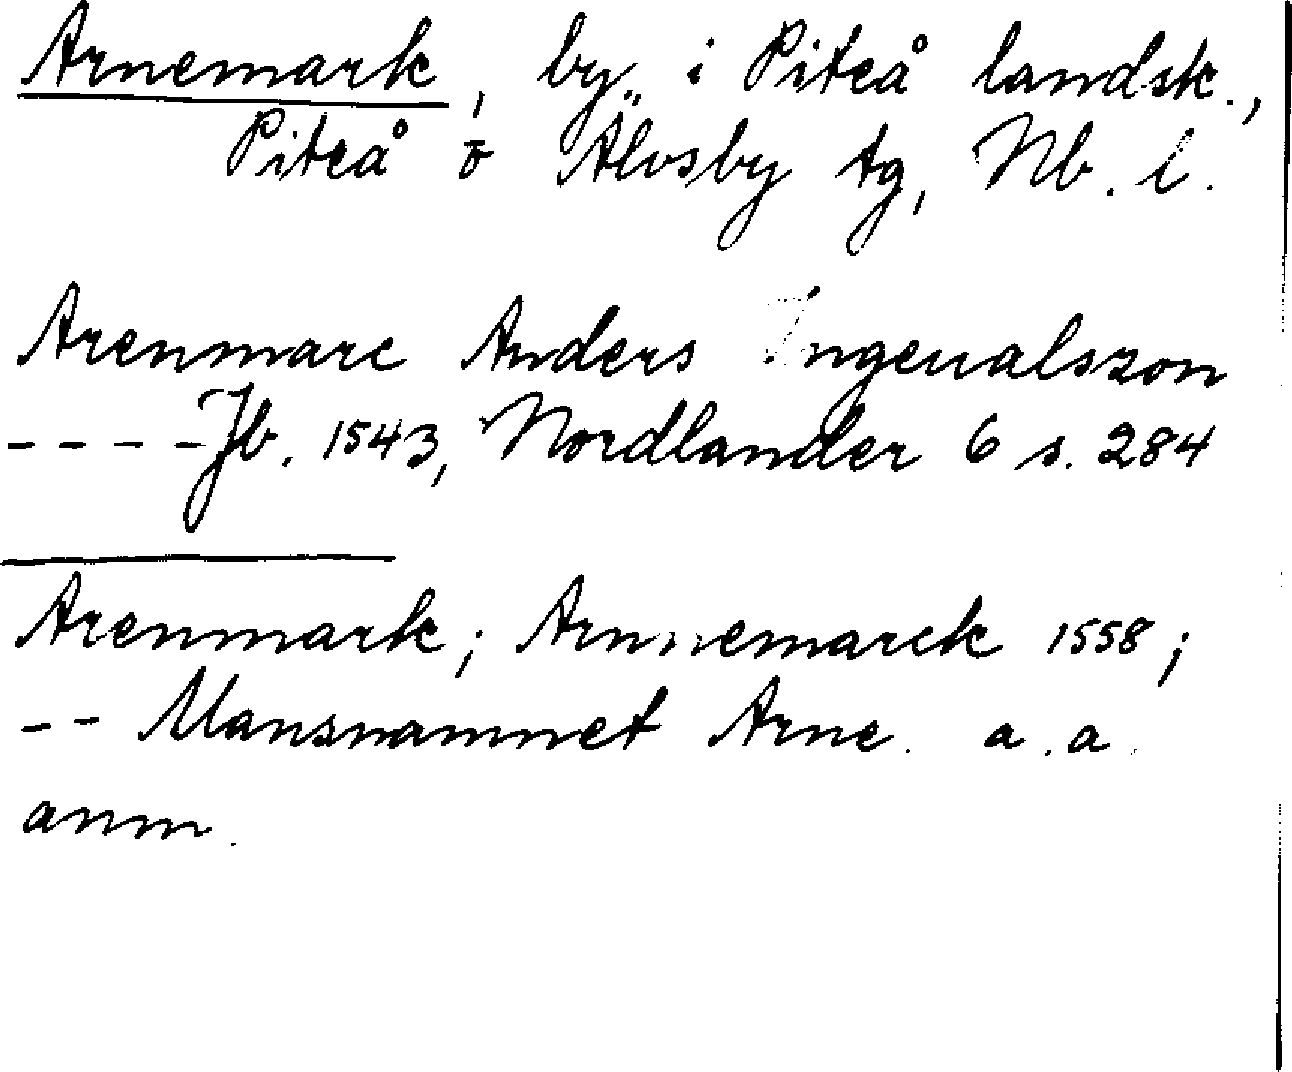 Arnemark, by i Piteå landsk.,
Piteå o Älvsby tg, Nb. l.
Arenmarc Anders Ingeualszon
- - - - Jb. 1543, Nordlander 6 s. 284
Arenmark; Arnnemarck 1558;
- - Mansnamnet Arne. a.a.
anm.